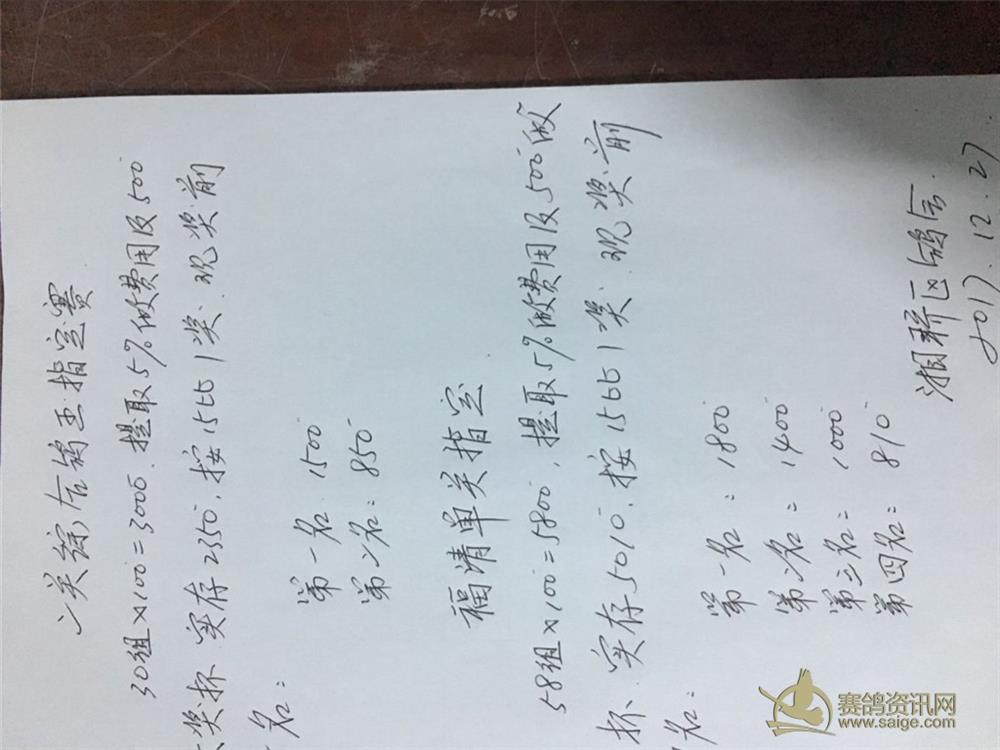 二关综合鸽王指定赛
30组×100=3000.提取5%做费用及500
奖杯 实存2350,按15比1奖.现奖前
名:
第一名:1500
第二名:850
福清单关指定
58组×100=5800,提取5%做费用及500做
杯、实存5010.按15比1奖.现奖前
名:
第一名:1800
第二名:1400
第三名:1000
第四名:810
湘桥区鸽会.
2017.12.27
赛鸽资讯网
www.saige.com